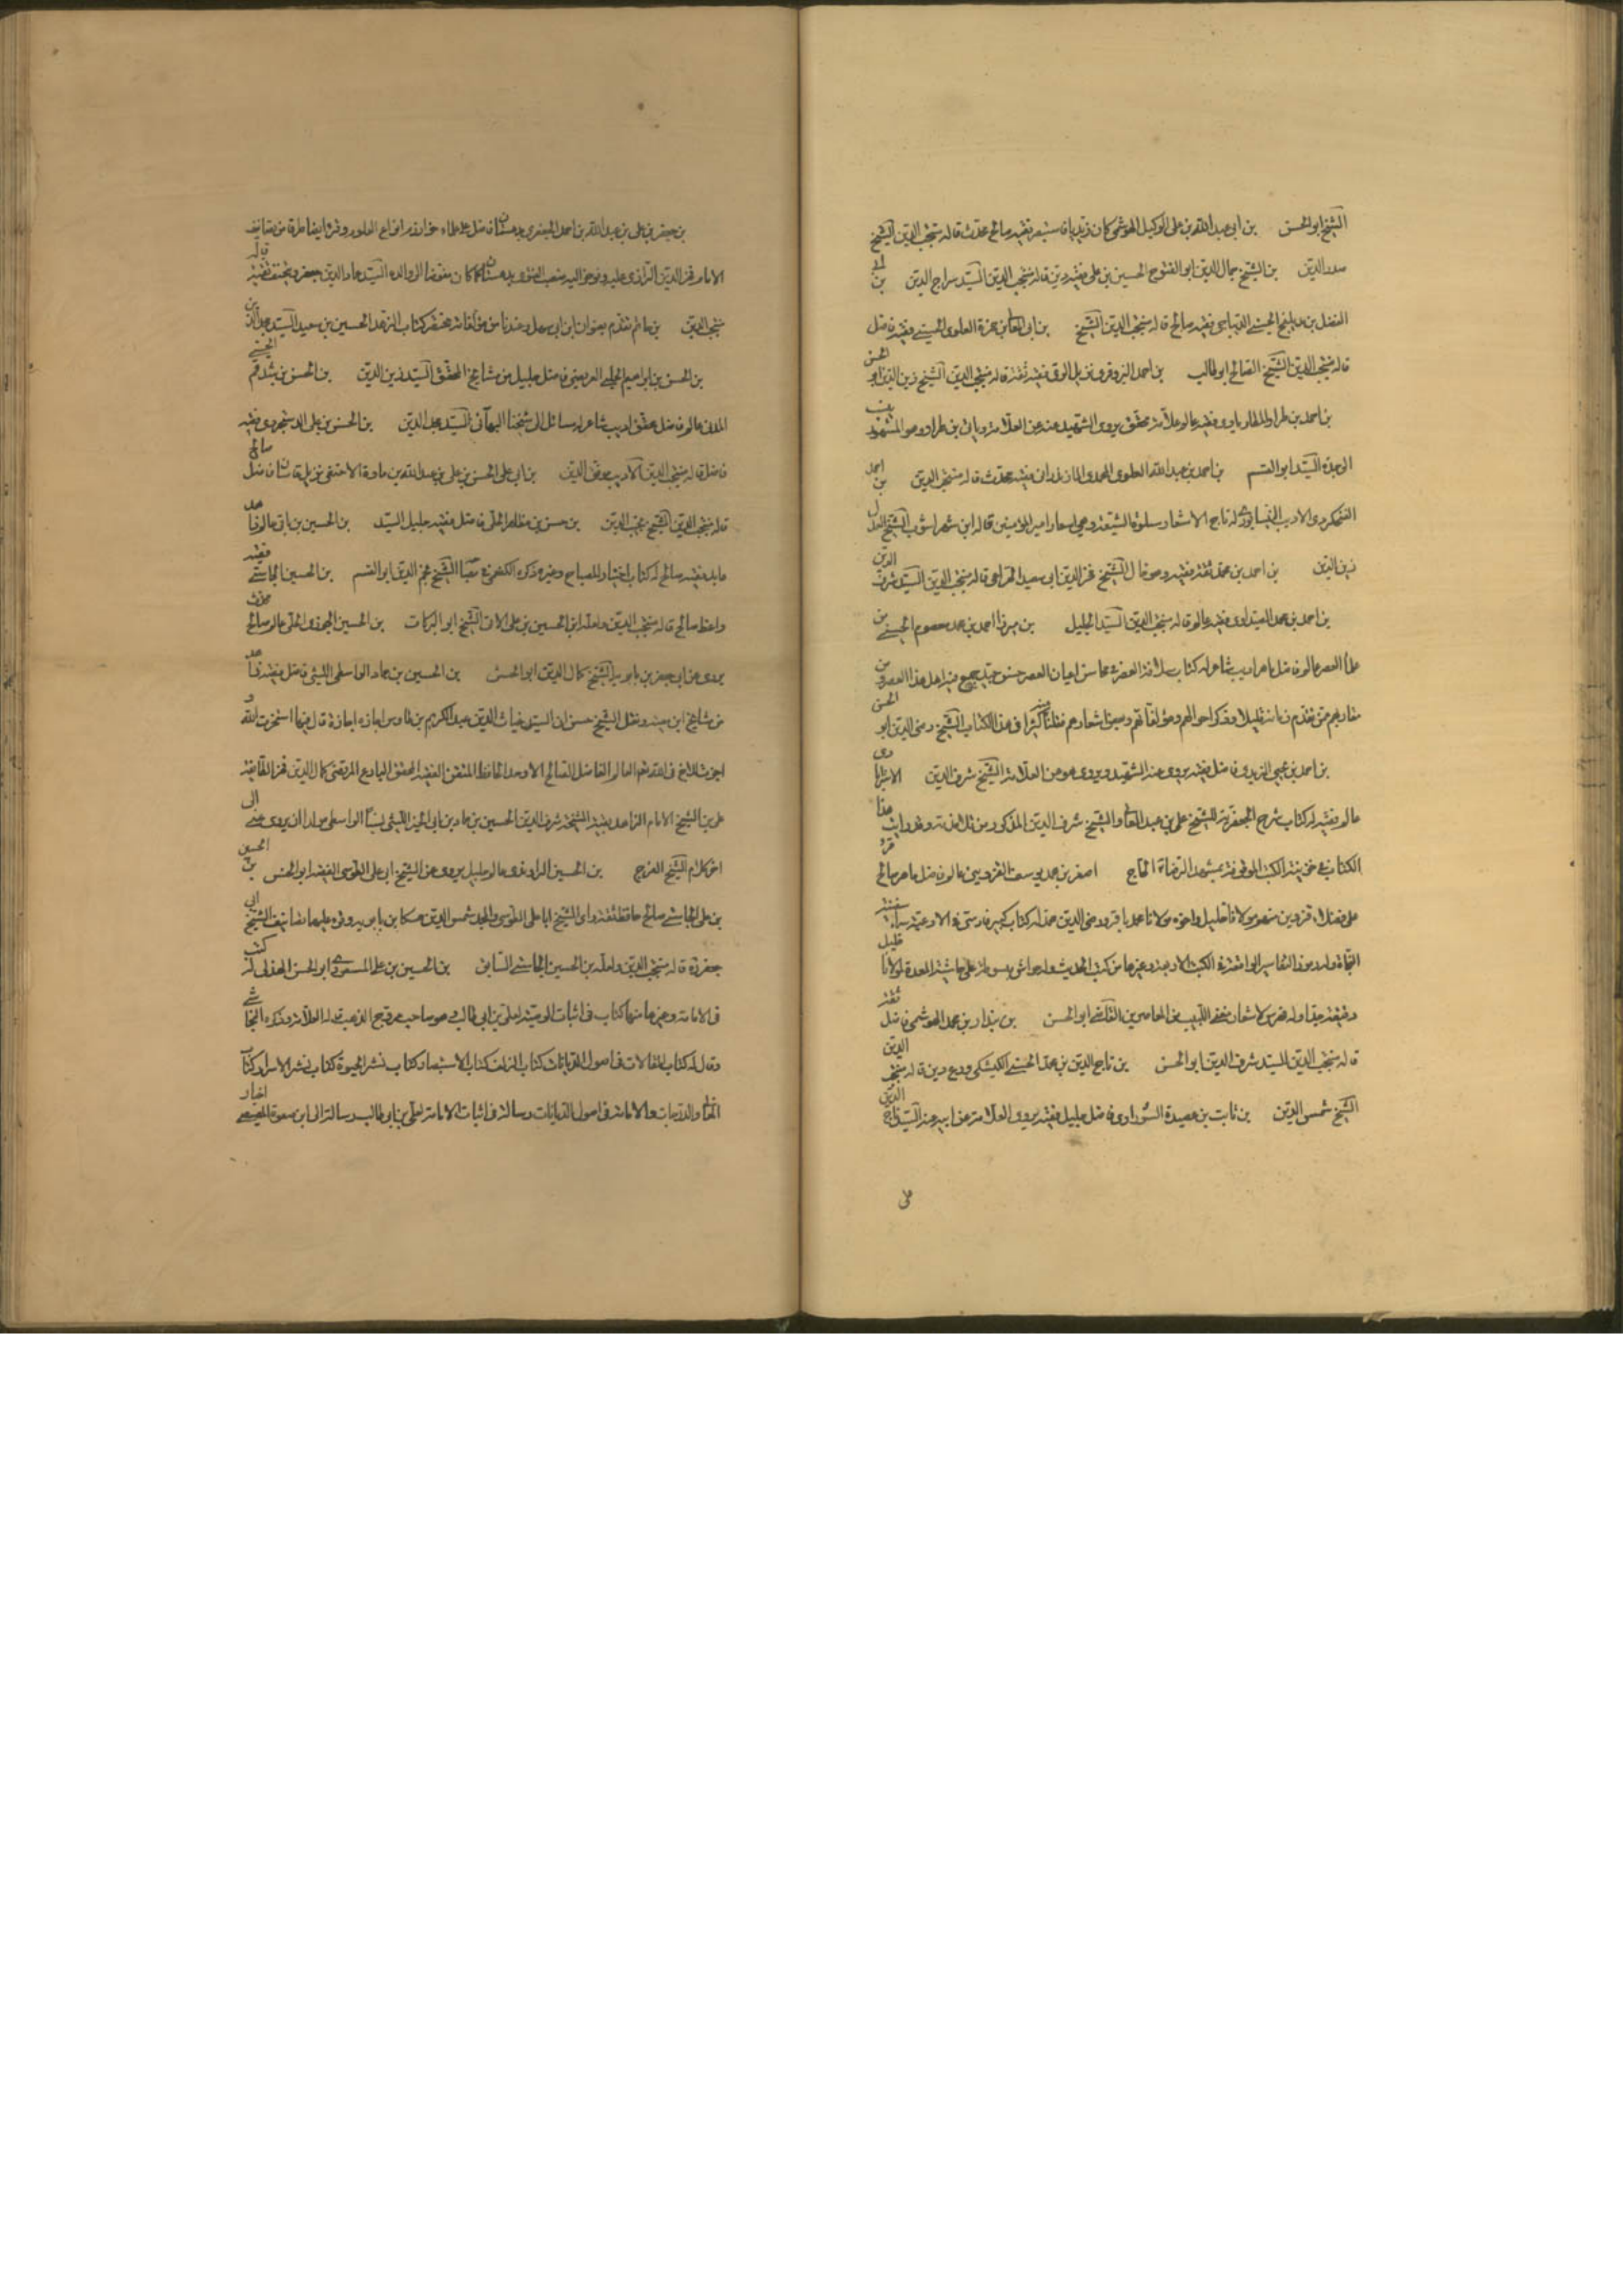 الشيخ ابو الحسن بن ابي عبد الله بن علي الوكيل الهوشمي كان زيديا فاستبصر فقيه صالح محدث قاله منتجب الدين الشيخ
صدر الدين بن الشيخ جمال الدين ابو الفتوح الحسين بن علي فقيه دين قاله منتجب الدين السيد سراج الدين بن ابي
الفضل بن الحسني الديباجي فقيه صالح قاله منتجب الدين الشيخ بن ابي المعالي بن حمزة العلوي الحسيني فقيه فاضل
قاله منتجب الدين الشيخ الصالح ابو طالب بن احمد البزوفري نزيل الوقف فقيه ثقة قاله منتجب الدين الشيخ زين الدين ابو الحسن
بن احمد بن طراد المطارباذي فقيه عالم علامة محقق يروي الشهيد عنه عن العلامة وياتي بن طراد وهو المشهور بنسب
الى جده السيد ابو القسم بن احمد بن عبد الله العلوي المحمدي المازندراني فقيه محدث قاله منتجب الدين بن احمد
الفنجكردي الاديب النيسابوري له تاج الاشعار وسلوة الشيعة وهي اشعار امير المؤمنين قاله ابن شهراشوب الشيخ العدل
زين الدين بن احمد بن محمد ثقة فقيه وصو قال الشيخ فخر الدين ابي سعيد قاله منتجب الدين السيد شرف الدين
بن احمد بن محمد الصيداوي فقيه عالم قاله منتجب الدين السيد الجليل بن ميرزا احمد بن محمد معصوم الحسيني من
علماء العصر عالم فاضل ماهر اديب شاعر له كتاب سلافة العصر في محاسن اعيان العصر حسن جيد جمع فيه اهل هذا العصر ومن
مقاربهم ممن تقدم زمانه قليلا وذكر احوالهم ومؤلفاتهم وبعض اشعارهم نقلنا منه كثيرا في هذا الكتاب الشيخ رضي الدين ابو الحسن
بن احمد بن يحيى المزيدي فاضل فقيه يروي عنه الشهيد ويروي هو عن العلامة الشيخ شرف الدين الاسترابادي
عالم فقيه له كتاب شرح الجعفرية للشيخ علي بن عبد العالي والشيخ شرف الدين المذكور من تلامذته وقد رايت هذا
الكتاب في خزينة الكتب الموقوفة بمشهد الرضا ع الحاج اصغر بن محمد يوسف القزويني عالم فاضل ماهر صالح قرأ
على فضلاء قزوين منهم مولانا خليل واخوه مولانا محمد باقر ورضي الدين محمد له كتاب كبير فارسي في الادعية سماه سفينة
النجاة وله رموز التفاسير الواقعة في الكتب الاربعة وغيرها من كتب الحديث وله حواش مبسوطة على حاشية العدة لمولانا خليل
بن بندار بن محمد الهوشمي فاضل ثقة
قاله منتجب الدين السيد شرف الدين ابو الحسن بن تاج الدين بن محمد الحسني الكيسكي ورع دين قاله منتجب الدين
الشيخ شمس الدين بن ثابت بن عصيدة السوراوي فاضل جليل فقيه يروي العلامة عن ابيه عنه السيد تاج الدين
علي
بن جعفر بن علي بن عبد الله بن احمد الجعفري بدهستان فاضل علماء خوارزم انواع العلوم وقرأ ايضا طرفا من تصانيف
الامام فخر الدين الرازي عليه وفوض اليه منصب الفتوى بدهستان كما كان مفوضا الى والده السيد عماد الدين جعفر ويخفف تقية قاله
منتجب الدين بن حاتم تقدم بعنوان ابن ابي سهل وعندنا من مؤلفاته مختصر كتاب الزهد للحسين بن سعيد السيد جلال الدين
بن الحسن بن ابراهيم الحلي العريضي فاضل جليل من مشايخ المحقق السيد زين الدين بن الحسن بن شدقم الحسيني
المدني عالم فاضل محقق اديب شاعر له مسائل الى شيخنا البهائي السيد مجد الدين بن الحسن بن علي الدستجردي فقيه
فاضل قاله منتجب الدين الاديب موفق الدين بن ابي علي الحسن بن علي بن عبد الله بن مادة الاحنفي نزيل قاشان فاضل صالح
قاله منتجب الدين الشيخ نجيب الدين بن حسن بن مظاهر الحلي فاضل فقيه جليل السيد بن الحسين بن باقي عالم زاهد
عابد فقيه صالح له كتاب اختيار المصباح وغيره ذكره الكفعمي الشيخ نجم الدين ابو القسم بن الحسين الجاستي فقيه
واعظ صالح قاله منتجب الدين ولعله ابن الحسين بن علي الاتي الشيخ ابو البركات بن الحسين الجوزي الحلي عالم صالح محدث
يروي عن ابي جعفر بن بابويه الشيخ كمال الدين ابو الحسن بن الحسين بن حماد الواسطي الليثي فاضل فقيه زاهد
من مشايخ ابن معية ونقل الشيخ حسن ان السيد غياث الدين عبد الكريم بن طاوس اجازه اجازة قال فيها استخرت الله و
اجزت للاخ في الله تعالى العالم الفاضل الصالح الاوحد الحافظ المتقن الفقيه المحقق البارع المرتضى كمال الدين فخر الطائفة
علي بن الشيخ الامام الزاهد بقية المشيخة شرف الدين الحسين بن حماد بن ابي الخير الليثي نسبا الواسطي مولدا ان يروي عني الى
اخر كلام الشيخ الفرج بن الحسين الراوندي عالم جليل يروي عن الشيخ ابي علي الطوسي الفقيه ابو الحسن بن الحسين
بن علي الجاستي صالح حافظ ثقة راى الشيخ ابا علي الطوسي والجد شمس الدين حسكا بن بابويه وقرأ عليهما تصانيف الشيخ ابي
جعفر ره قاله منتجب الدين ولعله بن الحسين الجاستي السابق بن الحسين بن علي المسعودي ابو الحسن الهذلي له كتب
في الامامة وغيرها منها كتاب في اثبات الوصية لعلي بن ابي طالب وهو صاحب مروج الذهب قاله العلامة وذكره النجاشي
وقال له كتاب المقالات في اصول الديانات كتاب الزلف كتاب الاستبصار كتاب نشر الحيوة كتاب نشر الاسرار كتاب
والدرجات والامامة في اصول الديانات رسالة في اثبات الامامة لعلي بن ابي طالب رسالة الى ابن صعوة المصيصي اخبار